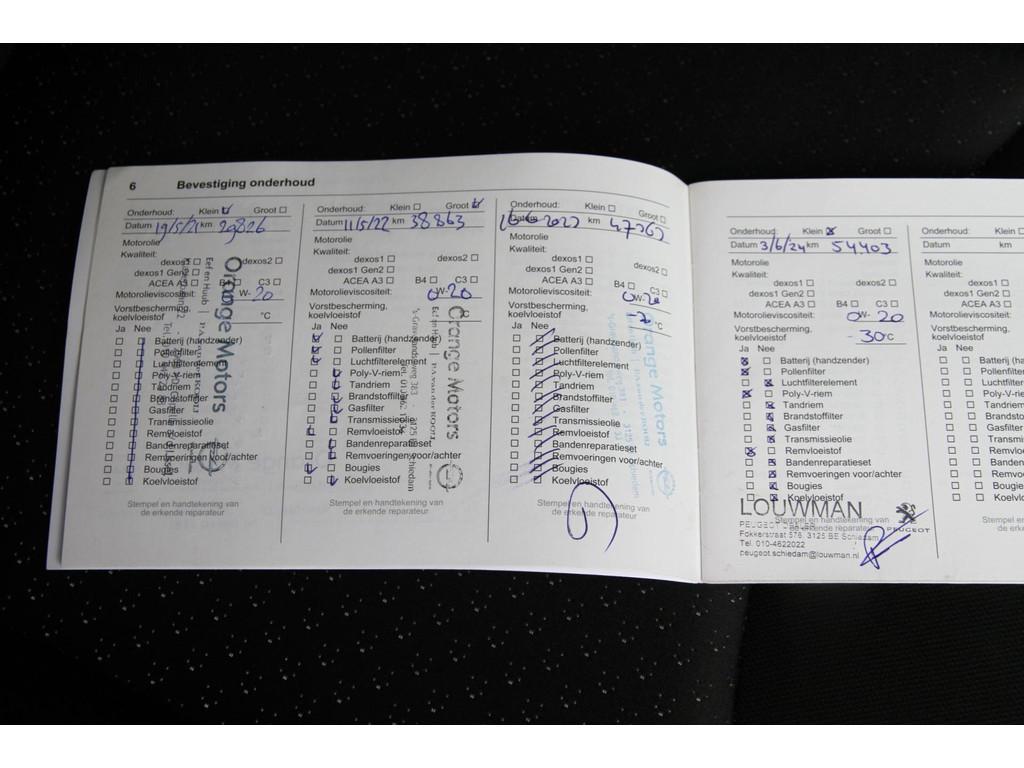 6 Bevestiging onderhoud
Onderhoud: Klein Groot
Datum 19/5/21 km 29826
Motorolie
Kwaliteit:
dexos1 dexos2
dexos1 Gen2
ACEA A3 B4 C3
Motorolieviscositeit: W-20
Vorstbescherming,
koelvloeistof °C
Ja Nee
Batterij (handzender)
Pollenfilter
Luchtfilterelement
Poly-V-riem
Tandriem
Brandstoffilter
Gasfilter
Transmissieolie
Remvloeistof
Bandenreparatieset
Remvoeringen voor/achter
Bougies
Koelvloeistof
Stempel en handtekening van
de erkende reparateur
Orange Motors
Onderhoud: Klein Groot
Datum 11/5/22 km 38863
Motorolie
Kwaliteit:
dexos1 dexos2
dexos1 Gen2
ACEA A3 B4 C3
Motorolieviscositeit: 0W-20
Vorstbescherming,
koelvloeistof
Ja Nee
Batterij (handzender)
Pollenfilter
Luchtfilterelement
Poly-V-riem
Tandriem
Brandstoffilter
Gasfilter
Transmissieolie
Remvloeistof
Bandenreparatieset
Remvoeringen voor/achter
Bougies
Koelvloeistof
Stempel en handtekening van
de erkende reparateur
Orange Motors
's-Gravelandseweg 383 - 3125 Schiedam
Onderhoud: Klein Groot
Datum 2023 km 47262
Motorolie
Kwaliteit:
dexos1 dexos2
dexos1 Gen2
ACEA A3 B4 C3
Motorolieviscositeit: 0W-20
Vorstbescherming,
koelvloeistof °C
Ja Nee
Batterij (handzender)
Pollenfilter
Luchtfilterelement
Poly-V-riem
Tandriem
Brandstoffilter
Gasfilter
Transmissieolie
Remvloeistof
Bandenreparatieset
Remvoeringen voor/achter
Bougies
Koelvloeistof
Stempel en handtekening van
de erkende reparateur
Orange Motors
Onderhoud: Klein Groot
Datum 3/6/24 km 54403
Motorolie
Kwaliteit:
dexos1 dexos2
dexos1 Gen2
ACEA A3 B4 C3
Motorolieviscositeit: 0W-20
Vorstbescherming,
koelvloeistof -30°C
Ja Nee
Batterij (handzender)
Pollenfilter
Luchtfilterelement
Poly-V-riem
Tandriem
Brandstoffilter
Gasfilter
Transmissieolie
Remvloeistof
Bandenreparatieset
Remvoeringen voor/achter
Bougies
Koelvloeistof
Stempel en handtekening van
de erkende reparateur
LOUWMAN
PEUGEOT DEALER
Fokkerstraat 576, 3125 BE Schiedam
Tel. 010-4622022
peugeot.schiedam@louwman.nl
PEUGEOT
Onderhoud: Klein
Datum km
Motorolie
Kwaliteit:
dexos1
dexos1 Gen2
ACEA A3
Motorolieviscositeit:
Vorstbescherming,
koelvloeistof
Ja Nee
Batterij (ha
Pollenfilter
Luchtfilter
Poly-V-rie
Tandriem
Brandstof
Gasfilter
Transmis
Remvloei
Bandenre
Remvoer
Bougies
Koelvloei
Stempel en h
de erken